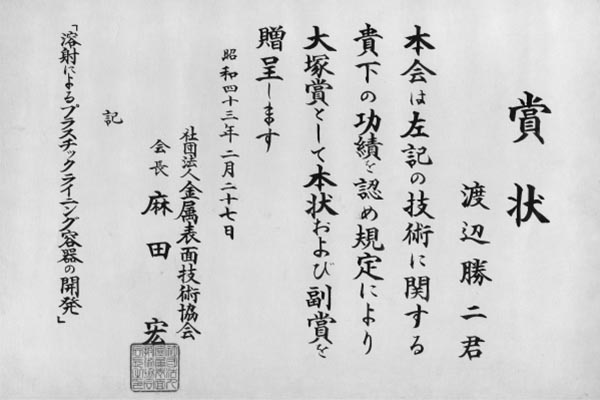 賞状
渡辺勝二君
本会は左記の技術に関する
貴下の功績を認め規定により
大塚賞として本状および副賞を
贈呈します
昭和四十三年二月二十七日
社団法人金属表面技術協会
会長 麻田 宏
記
「溶射によるプラスチックライニング容器の開発」